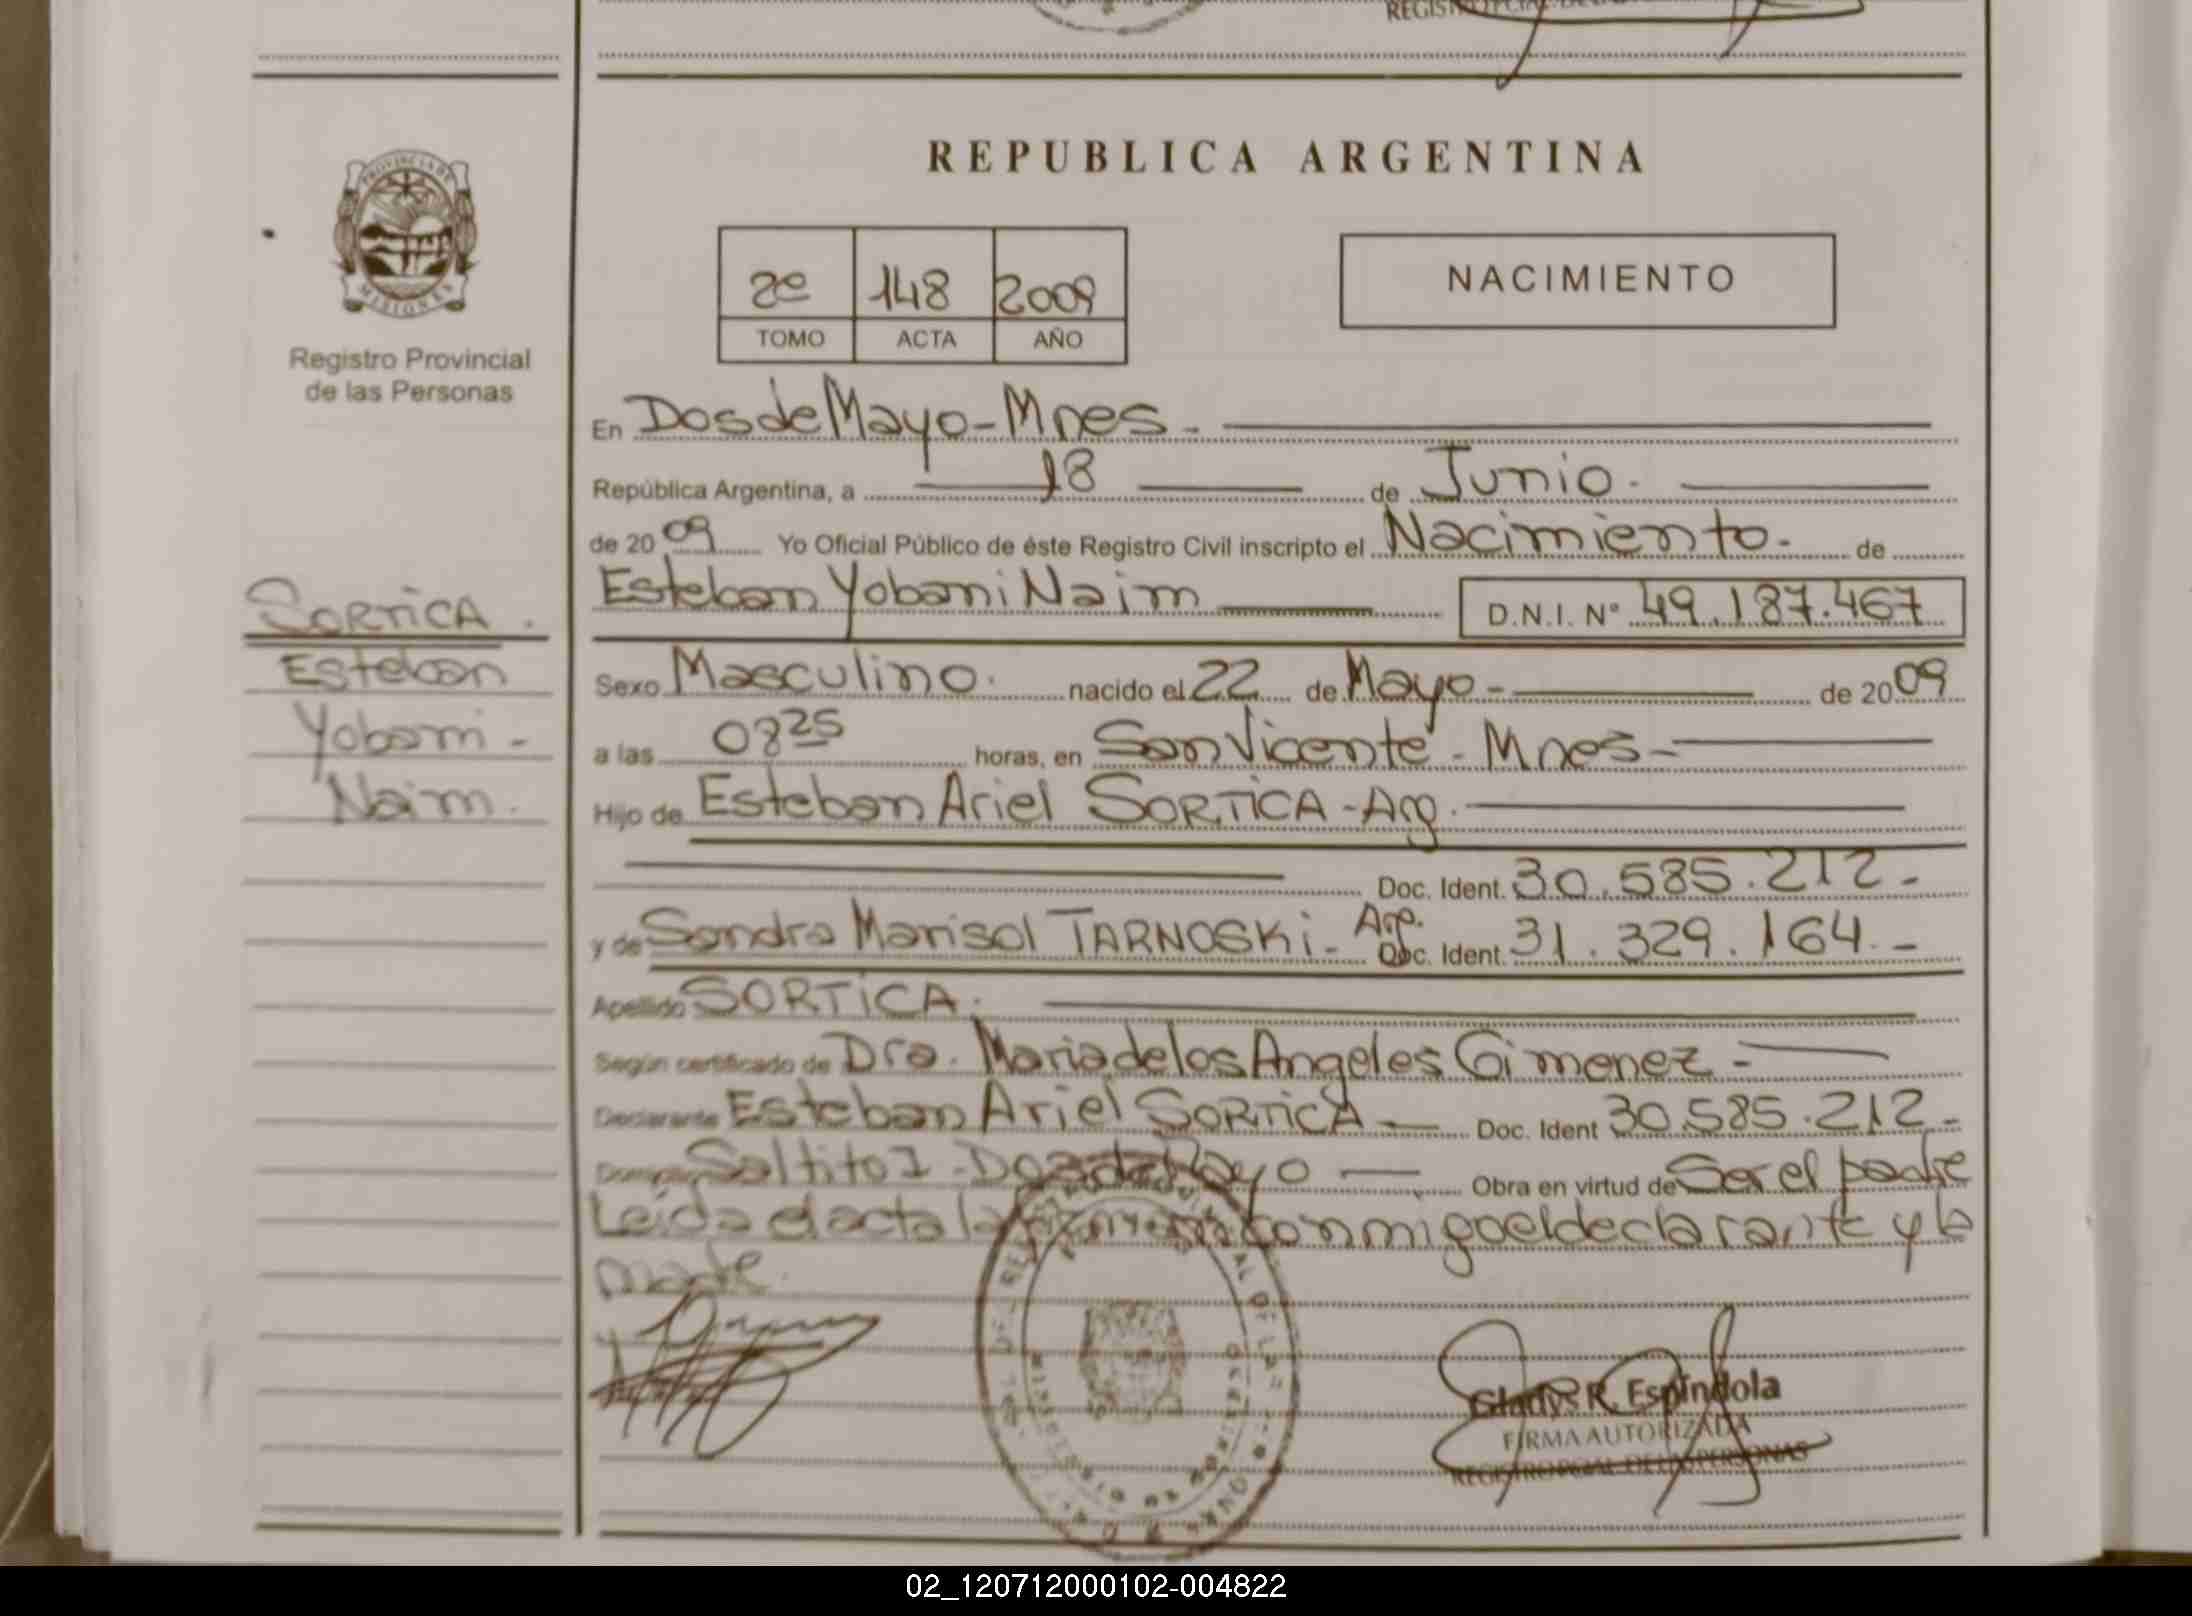 REPUBLICA ARGENTINA
PROVINCIA DE
MISIONES
Registro Provincial
de las Personas
2º 148 2009
TOMO ACTA AÑO
NACIMIENTO
En Dos de Mayo - Mnes.
República Argentina, a 18 de Junio.
de 2009 Yo Oficial Público de éste Registro Civil inscripto el Nacimiento. de
Esteban Yobani Naim D.N.I. Nº 49.187.467
SORTICA.
Esteban
Yobani -
Naim.
Sexo Masculino. nacido el 22 de Mayo - de 2009
a las 0825 horas, en San Vicente - Mnes -
Hijo de Esteban Ariel SORTICA - Arg.
Doc. Ident. 30.585.212 -
y de Sandra Marisol TARNOSKI - Arg. Doc. Ident. 31.329.164. -
Apellido SORTICA.
Según certificado de Dra. Maria de los Angeles Gimenez -
Declarante Esteban Ariel SORTICA Doc. Ident 30.585.212 -
Domicilio Saltito I - Dos de Mayo Obra en virtud de Ser el padre
Leida el acta la firman conmigo el declarante y la
madre.
Gladys R. Espíndola
FIRMA AUTORIZADA
REGISTRO PCIAL. DE LAS PERSONAS
02_120712000102-004822